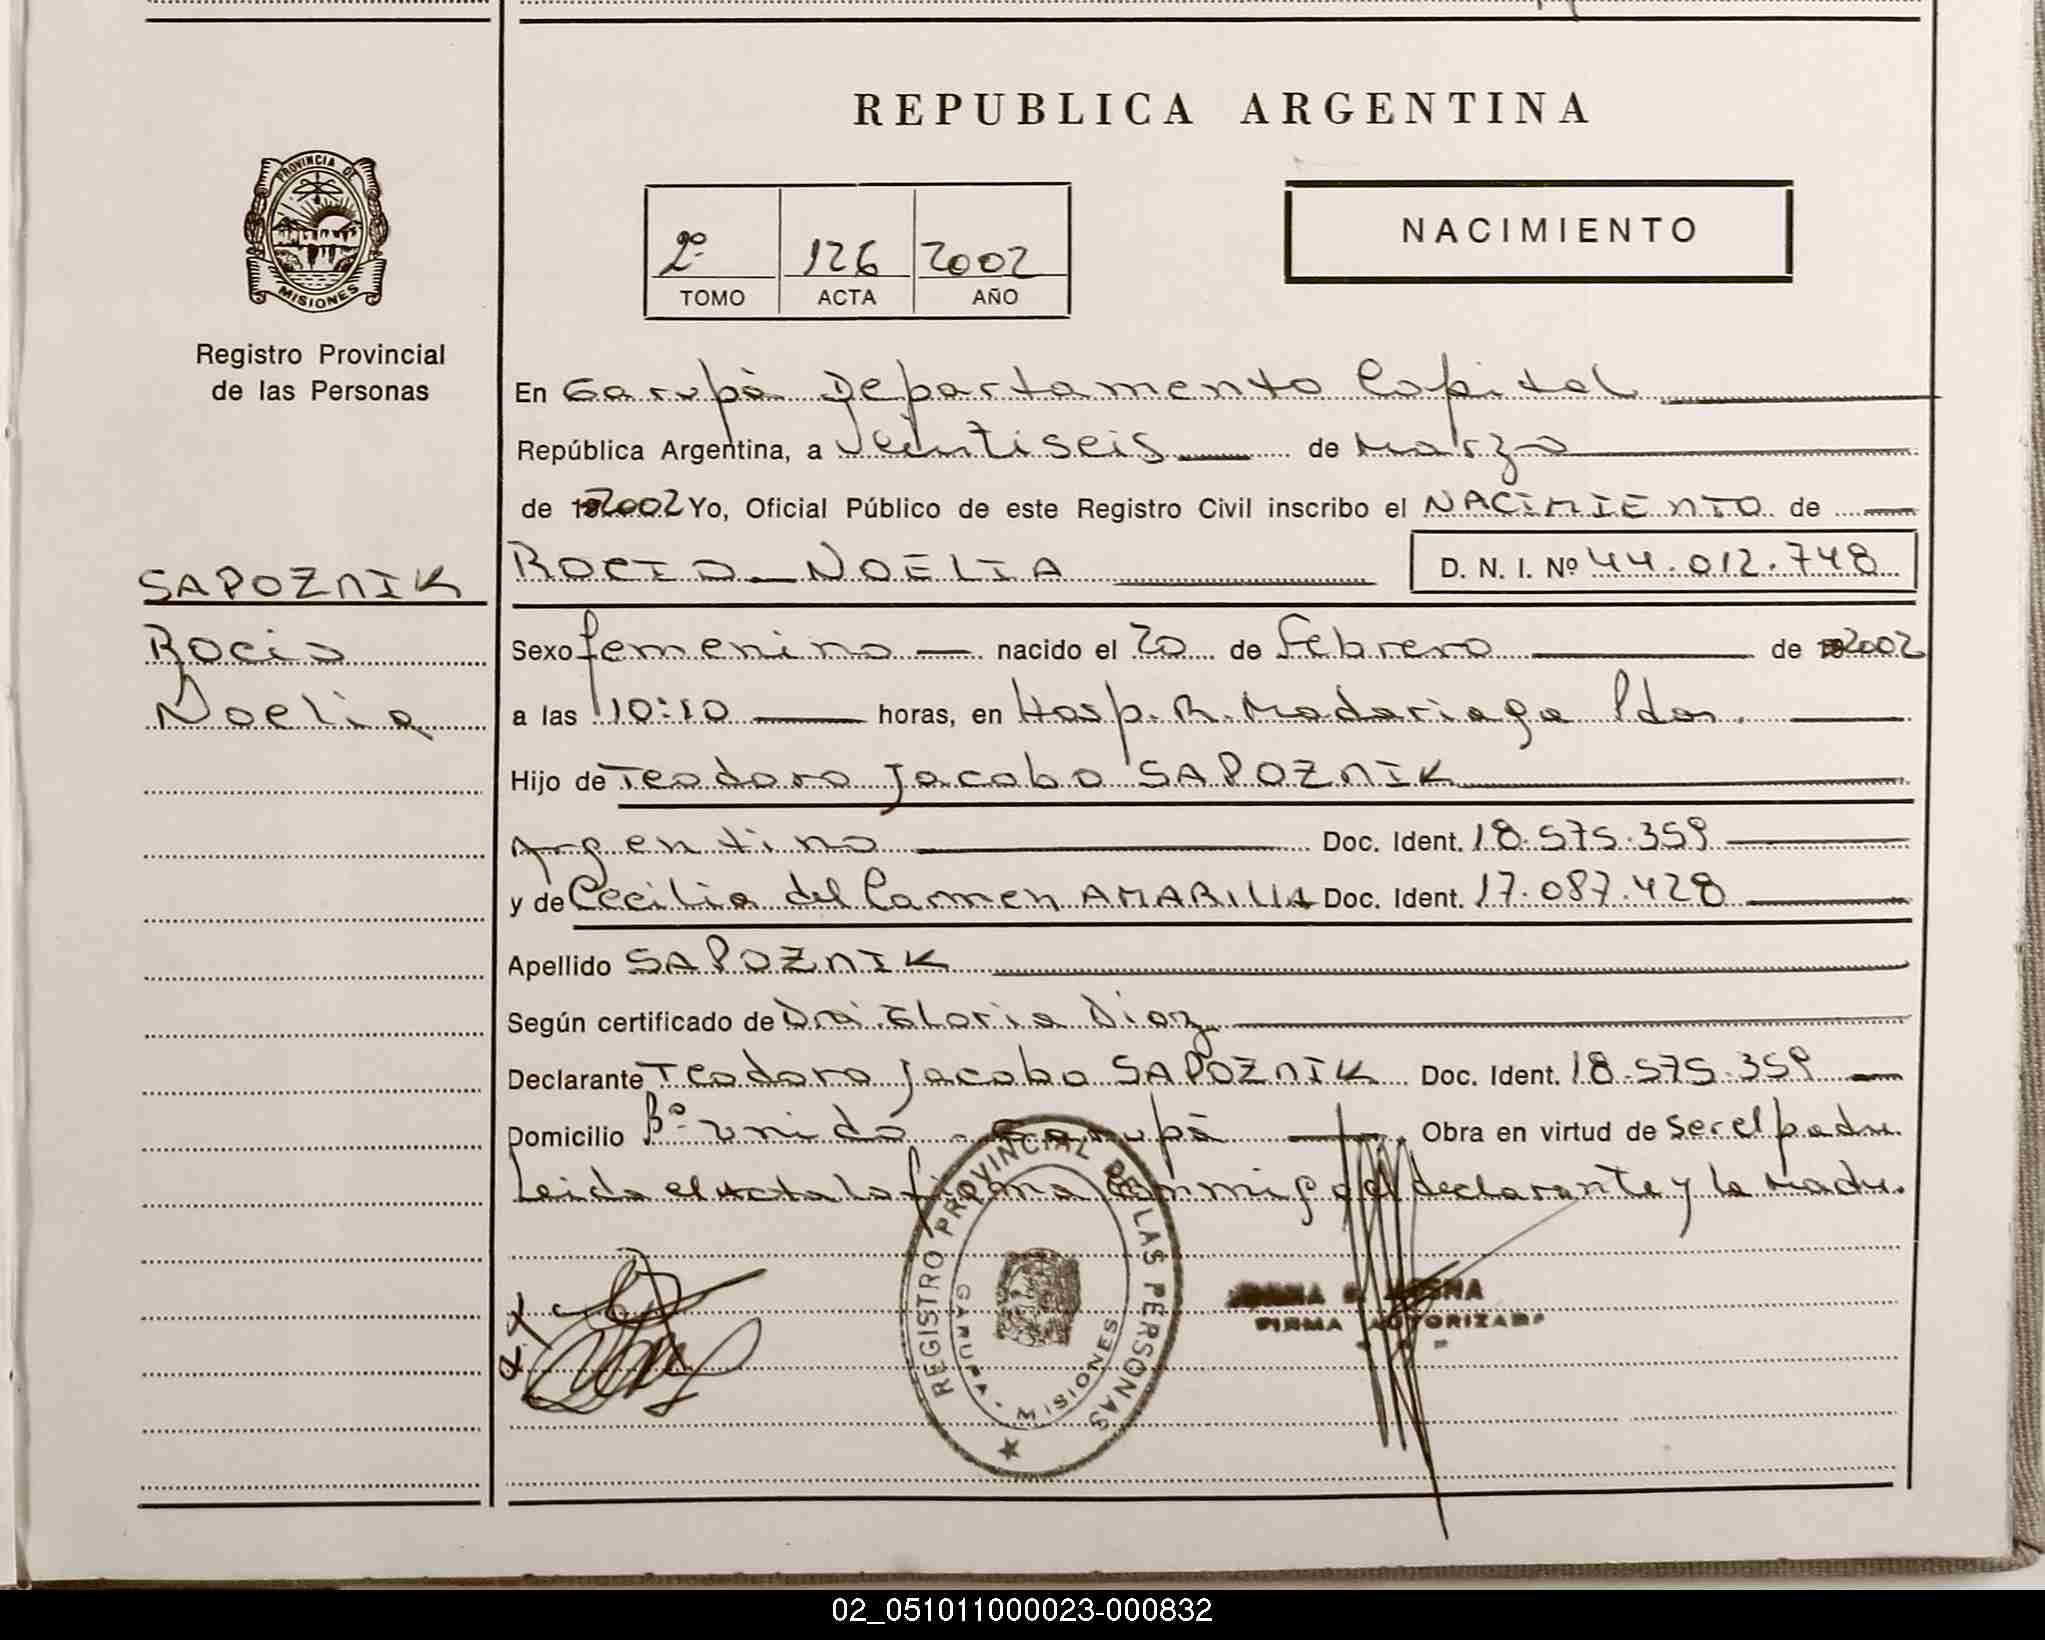 REPUBLICA ARGENTINA
PROVINCIA DE
MISIONES
Registro Provincial
de las Personas
2º 126 2002
TOMO ACTA AÑO
NACIMIENTO
En Garupà Departamento Capital
República Argentina, a Veintiseis de Marzo
de 2002 Yo, Oficial Público de este Registro Civil inscribo el NACIMIENTO de
SAPOZNIK
Rocio
Noelia
ROCIO NOELIA D. N. I. Nº 44.012.748
Sexo femenino nacido el 20 de Febrero de 2002
a las 10:10 horas, en Hosp. R. Madariaga Pdas.
Hijo de Teodoro Jacobo SAPOZNIK
Argentino Doc. Ident. 18.575.359
y de Cecilia del Carmen AMARILLA Doc. Ident. 17.087.428
Apellido SAPOZNIK
Según certificado de Dra. Gloria Diaz
Declarante Teodoro Jacobo SAPOZNIK Doc. Ident. 18.575.359
Domicilio Bº Unido - Garupà Obra en virtud de ser el padre.
Leida el acta la firma conmigo el declarante y la Madre.
REGISTRO PROVINCIAL DE LAS PERSONAS
GARUPA - MISIONES
FIRMA AUTORIZADA
02_051011000023-000832